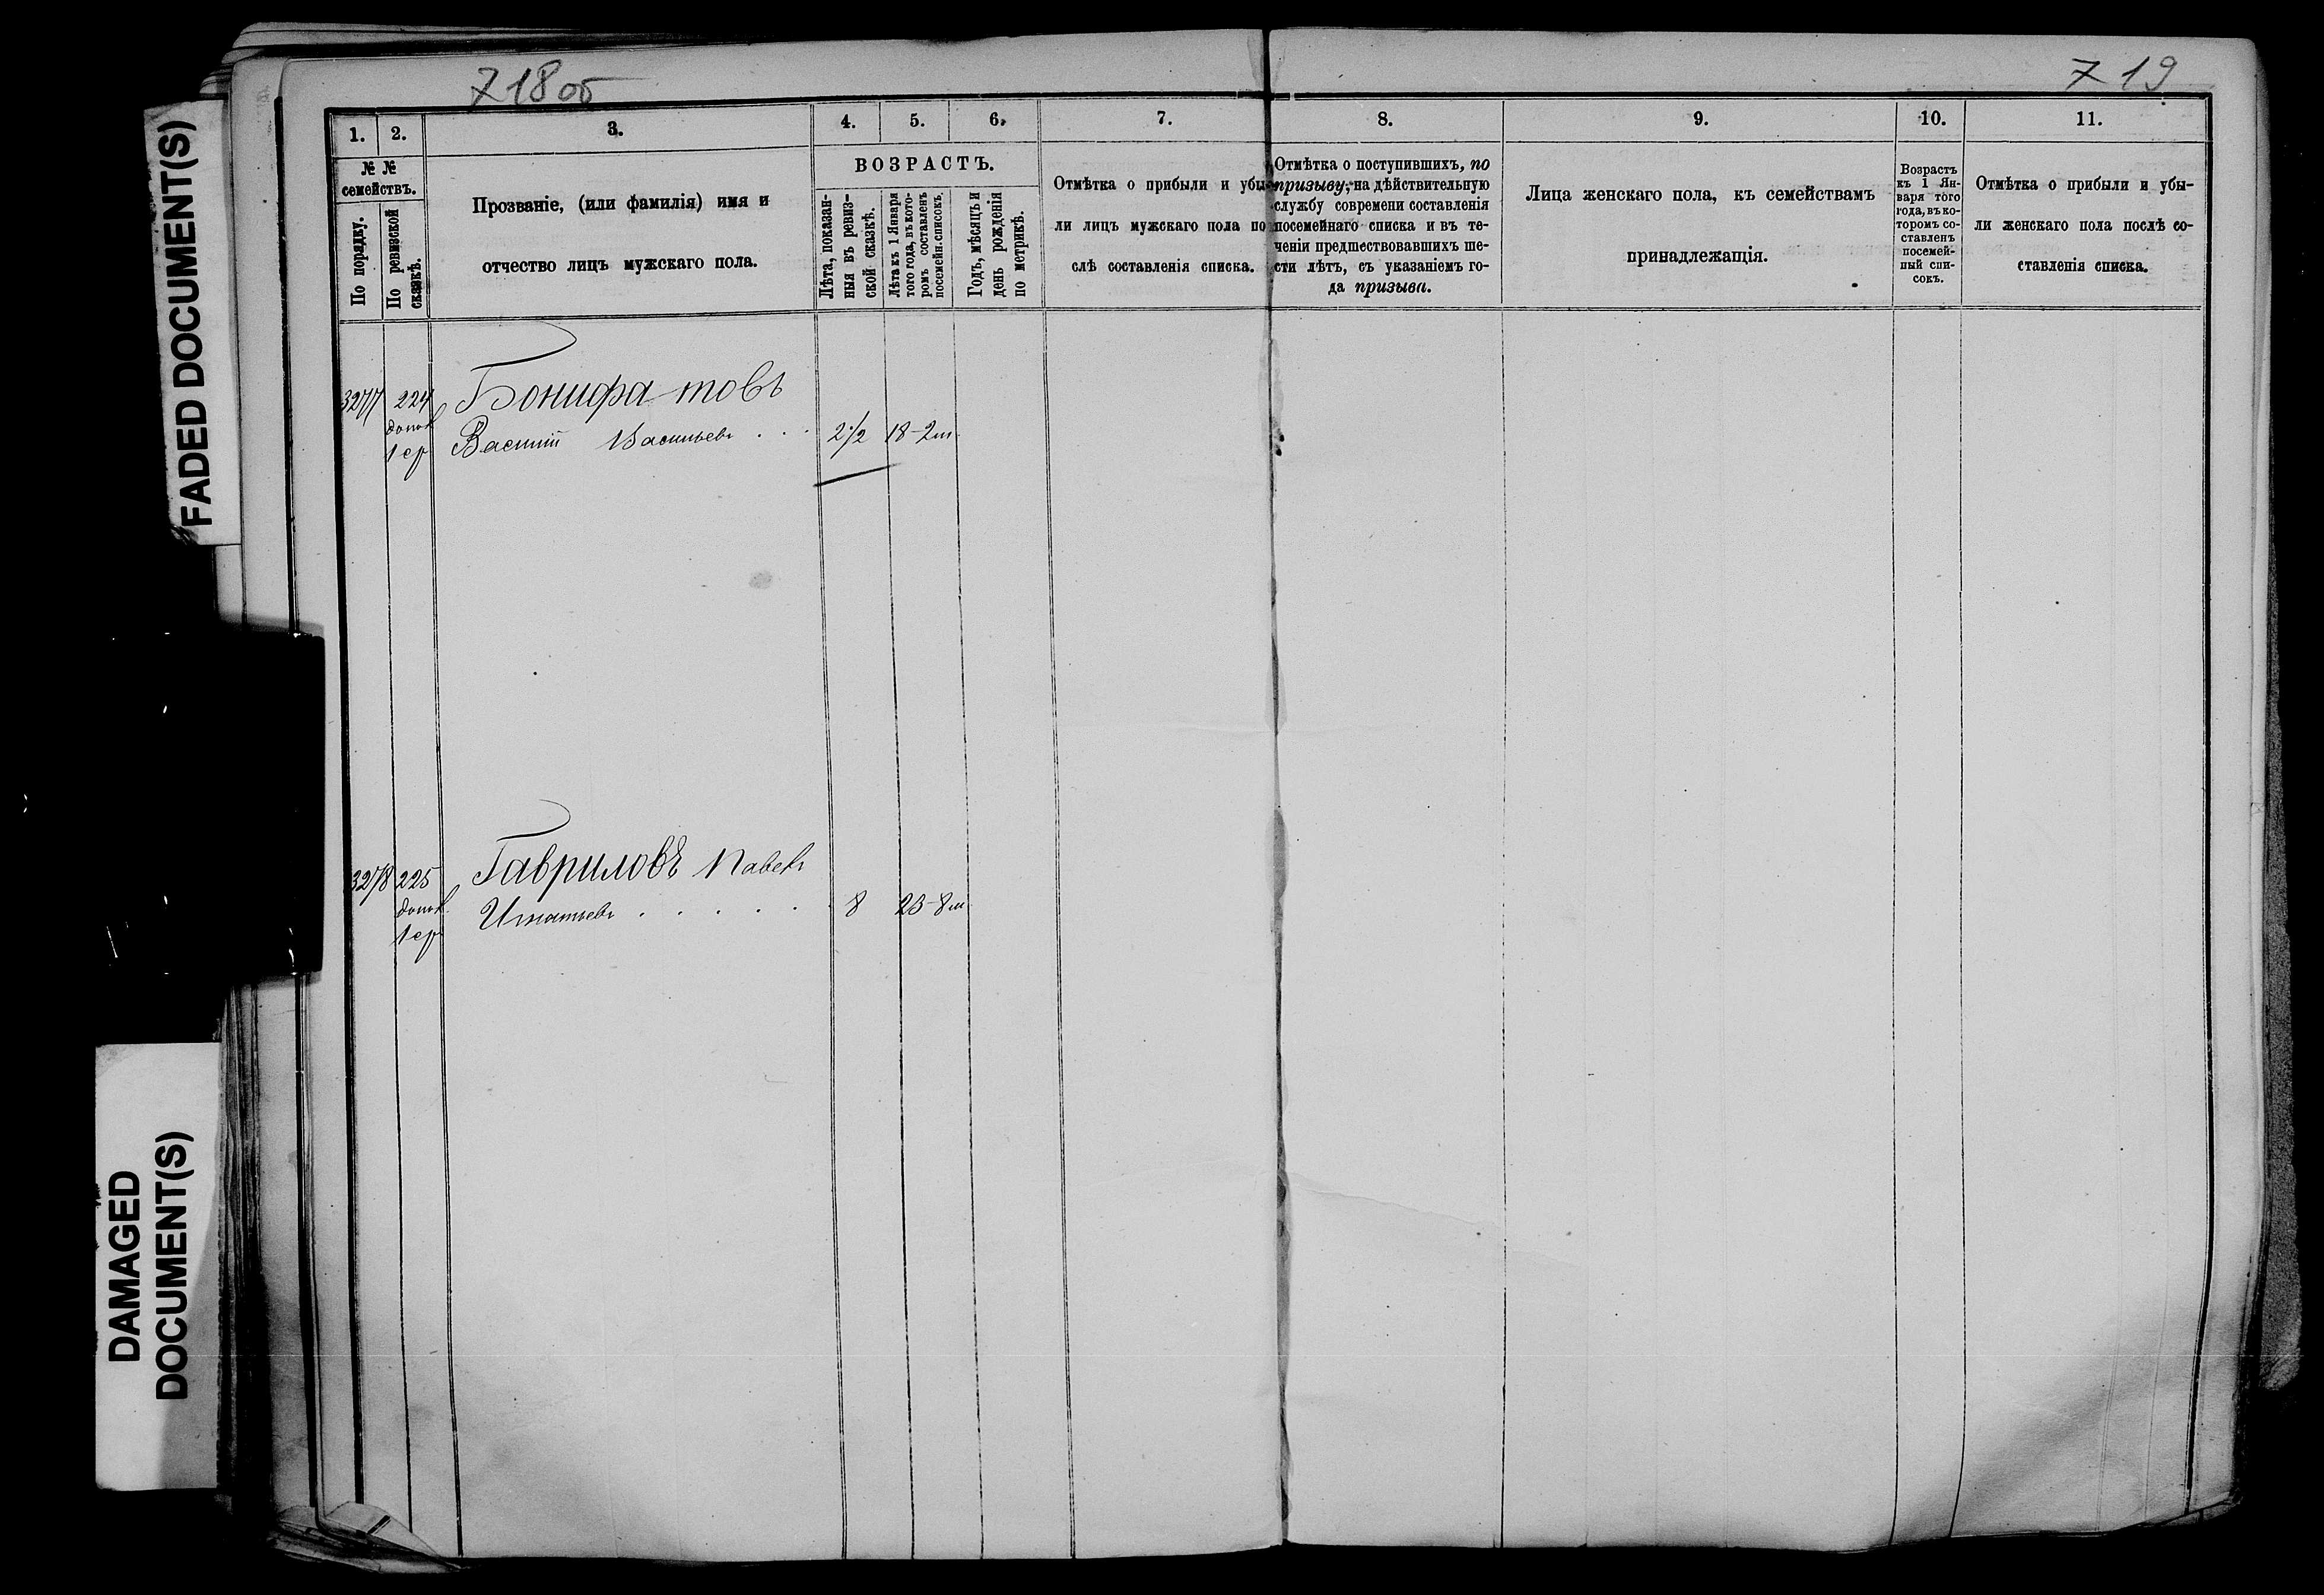 718об
719
1.
2.
3.
4.
5.
6.
7.
8.
9.
10.
11.
№ №
семействъ.
По порядку.
По ревизской
сказкѣ.
Прозваніе, (или фамилія) имя и
отчество лицъ мужскаго пола.
ВОЗРАСТЪ.
Лѣта, показан-
ныя въ ревиз-
ской сказкѣ.
Лѣта къ 1 Января
того года, въ кото-
ромъ составленъ
посемейн. списокъ.
Годъ, мѣсяцъ и
день рожденія
по метрикѣ.
Отмѣтка о прибыли и убы-
ли лицъ мужскаго пола по
слѣ составленія списка.
Отмѣтка о поступившихъ, по
призыву, на дѣйствительную
службу современи составленія
посемейнаго списка и въ те-
ченіи предшествовавшихъ ше-
сти лѣтъ, съ указаніемъ го-
да призыва.
Лица женскаго пола, къ семействамъ
принадлежащія.
Возрастъ
къ 1 Ян-
варя того
года, въ ко-
торомъ со-
ставленъ
посемей-
ный спи-
сокъ.
Отмѣтка о прибыли и убы-
ли женскаго пола послѣ со-
ставленія списка.
3277 224 Бонифатовъ
допол
1 ср Василій Васильевъ . . . 2½ 18-2м
3278 225 Гавриловъ Павелъ
допол. Игнатьевъ . . . . . 8 23-8м
1 ср
FADED DOCUMENT(S)
DAMAGED
DOCUMENT(S)